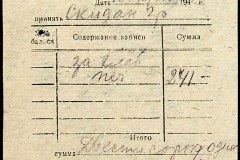 Дата
принять Скидан Гр
бал. сч. Содержание записи Сумма
за хлеб
печ 241-
Итого
сумма Двести сорок один